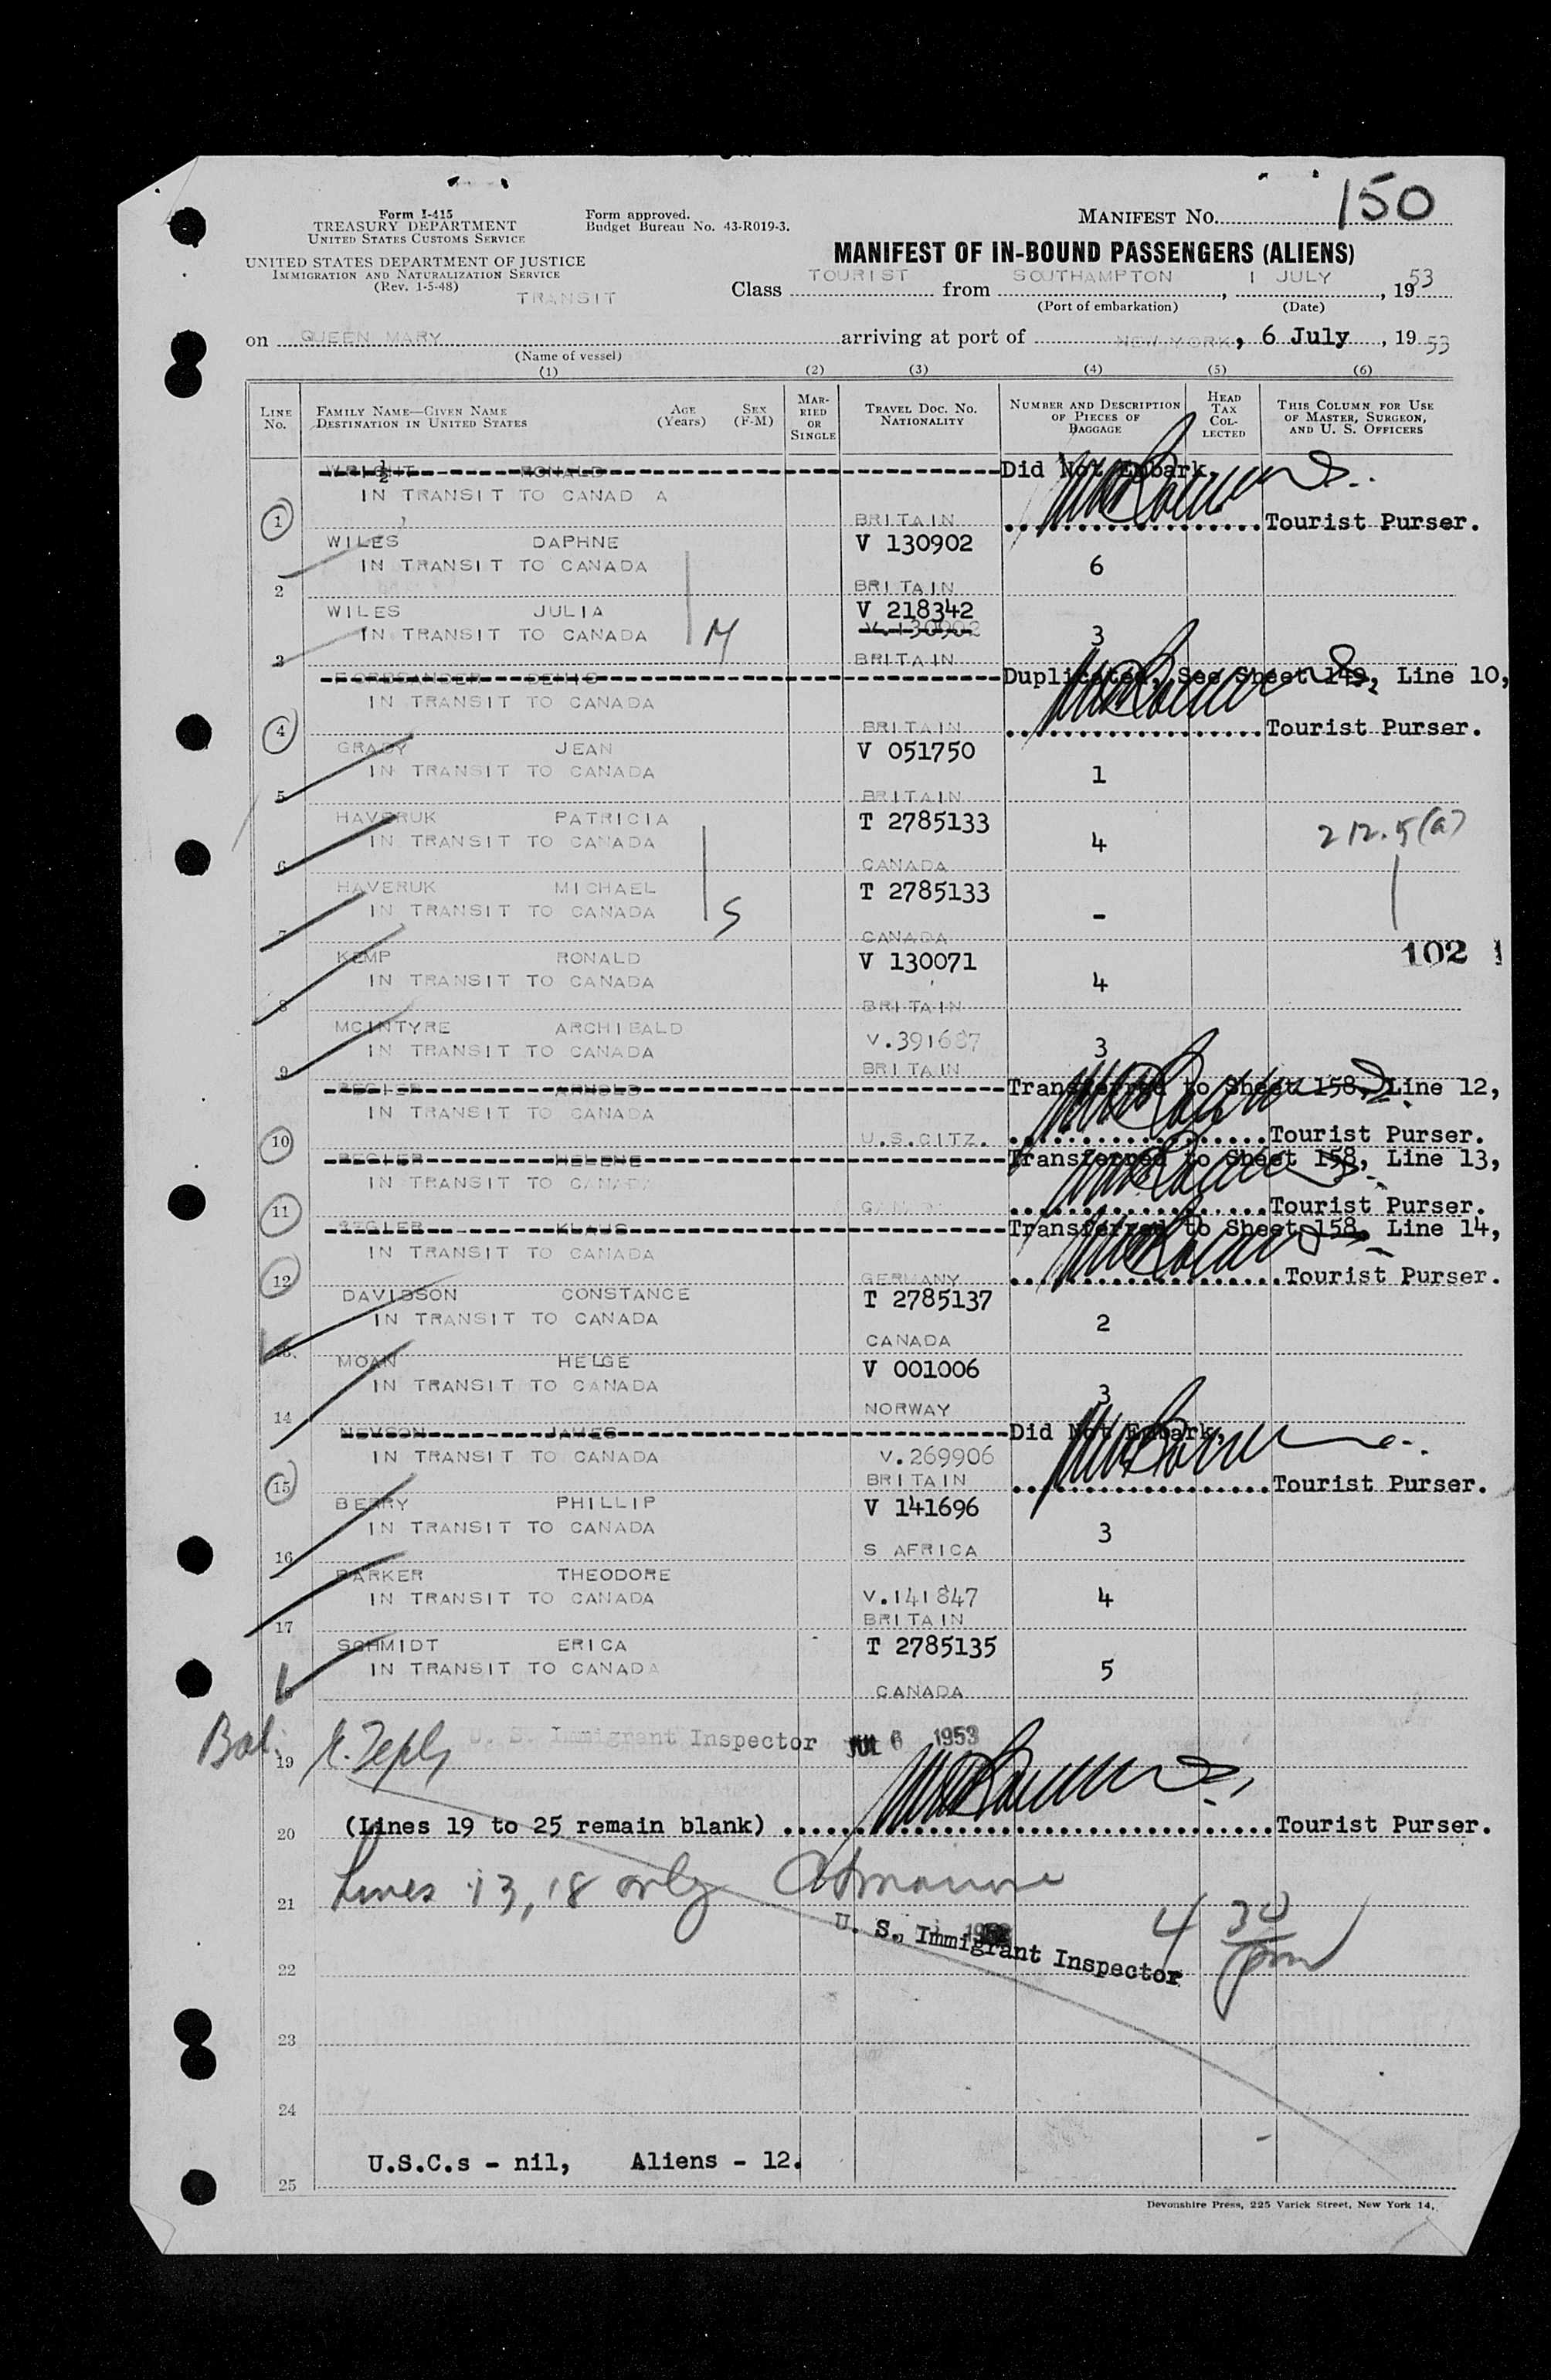 Form I-415
TREASURY DEPARTMENT
UNITED STATES CUSTOMS SERVICE
UNITED STATES DEPARTMENT OF JUSTICE
IMMIGRATION AND NATURALIZATION SERVICE
(Rev. 1-5-48)
TRANSIT
Form approved.
Budget Bureau No. 43-R019-3.
MANIFEST NO. 150
MANIFEST OF IN-BOUND PASSENGERS (ALIENS)
Class TOURIST from SOUTHAMPTON, 1 JULY, 1953
(Port of embarkation) (Date)
on QUEEN MARY arriving at port of NEW YORK, 6 July, 19 53
(Name of vessel)
(1) (2) (3) (4) (5) (6)
LINE NO. FAMILY NAME—GIVEN NAME DESTINATION IN UNITED STATES AGE (Years) SEX (F-M) MARRIED OR SINGLE TRAVEL DOC. NO. NATIONALITY NUMBER AND DESCRIPTION OF PIECES OF BAGGAGE HEAD TAX COLLECTED THIS COLUMN FOR USE OF MASTER, SURGEON, AND U. S. OFFICERS
WRIGHT RONALD Did Not Embark.
IN TRANSIT TO CANAD A
1 BRITAIN Tourist Purser.
WILES DAPHNE V 130902
IN TRANSIT TO CANADA 6
2 BRITAIN
WILES JULIA V 218342
IN TRANSIT TO CANADA M V.130902 3
3 BRITAIN
Duplicated, See Sheet 149, Line 10,
IN TRANSIT TO CANADA
4 BRITAIN Tourist Purser.
GRADY JEAN V 051750
IN TRANSIT TO CANADA 1
5 BRITAIN
HAVERUK PATRICIA T 2785133
IN TRANSIT TO CANADA 4 212.5(a)
6 CANADA
HAVERUK MICHAEL T 2785133
IN TRANSIT TO CANADA S -
7 CANADA
KEMP RONALD V 130071 102 1
IN TRANSIT TO CANADA 4
8 BRITAIN
MCINTYRE ARCHIBALD V.391687
IN TRANSIT TO CANADA 3
9 BRITAIN
ARNOLD Transferred to Sheet 158, Line 12,
IN TRANSIT TO CANADA
10 U.S.CITZ. Tourist Purser.
HELENE Transferred to Sheet 158, Line 13,
IN TRANSIT TO CANADA
11 Tourist Purser.
KLAUS Transferred to Sheet 158, Line 14,
IN TRANSIT TO CANADA
12 GERMANY Tourist Purser.
DAVIDSON CONSTANCE T 2785137
IN TRANSIT TO CANADA 2
13. CANADA
MOAN HELGE V 001006
IN TRANSIT TO CANADA 3
14 NORWAY
NEVSON JAMES Did Not Embark.
IN TRANSIT TO CANADA V.269906
15 BRITAIN Tourist Purser.
BERRY PHILLIP V 141696
IN TRANSIT TO CANADA 3
16 S AFRICA
BARKER THEODORE
IN TRANSIT TO CANADA V.141847 4
17 BRITAIN
SCHMIDT ERICA T 2785135
IN TRANSIT TO CANADA 5
18 CANADA
Bal. U. S. Immigrant Inspector JUL 6 1953
19
20 (Lines 19 to 25 remain blank) Tourist Purser.
Lines 13, 18 only
21
U. S. Immigrant Inspector 4 30 pm
22
23
24
U.S.C.s - nil, Aliens - 12.
25
Devonshire Press, 225 Varick Street, New York 14.